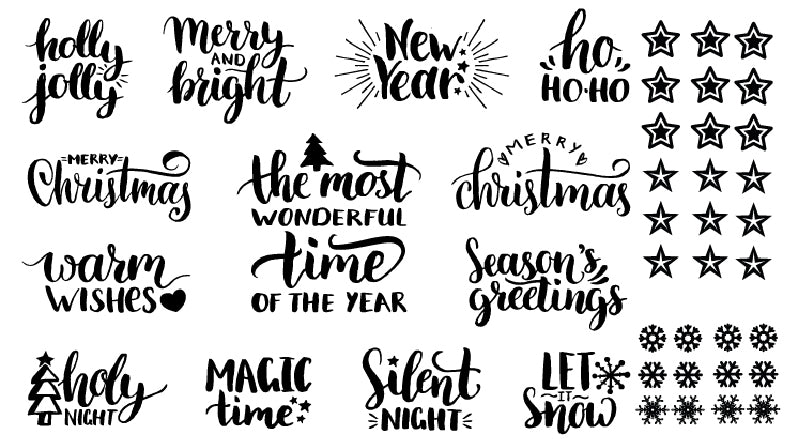 holly
jolly
Merry
AND
bright
New
Year
ho
HO·HO
MERRY
Christmas
the most
WONDERFUL
time
OF THE YEAR
MERRY
christmas
warm
WISHES
Season's
greetings
holy
NIGHT
MAGIC
time
Silent
NIGHT
LET
IT
Snow